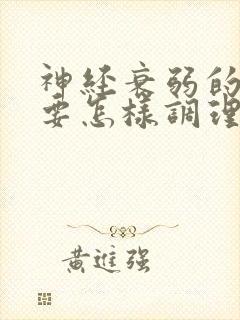 神経衰弱的
要怎樣調理
黃進强